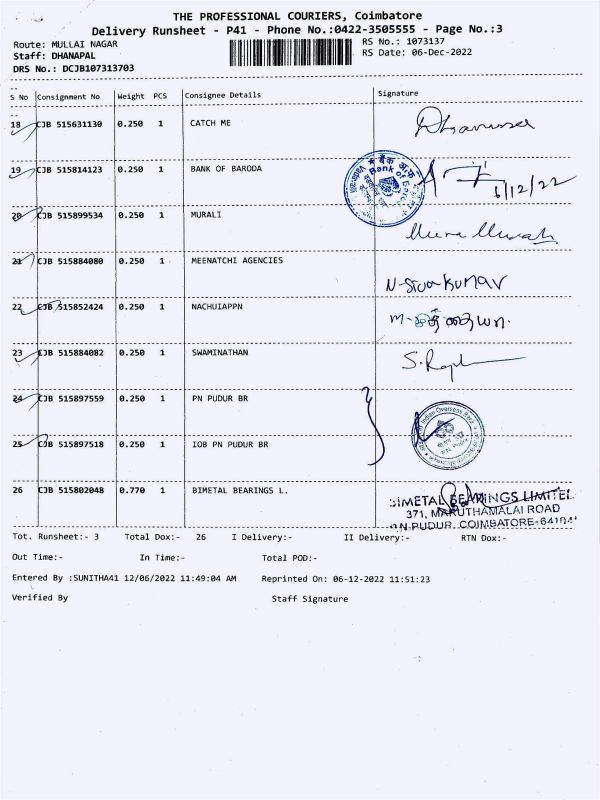 THE PROFESSIONAL COURIERS, Coimbatore
Delivery Runsheet - P41 - Phone No.:0422-3505555 - Page No.:3
Route: MULLAI NAGAR RS No.: 1073137
Staff: DHANAPAL RS Date: 06-Dec-2022
DRS No.: DCJB107313703
S No Consignment No Weight PCS Consignee Details Signature
18 CJB 515631130 0.250 1 CATCH ME
19 CJB 515814123 0.250 1 BANK OF BARODA 6/12/22
20 CJB 515899534 0.250 1 MURALI
21 CJB 515884080 0.250 1 MEENATCHI AGENCIES N-Sivakumar
22 CJB 515852424 0.250 1 NACHUIAPPN
23 CJB 515884082 0.250 1 SWAMINATHAN
24 CJB 515897559 0.250 1 PN PUDUR BR
25 CJB 515897518 0.250 1 IOB PN PUDUR BR
26 CJB 515802048 0.770 1 BIMETAL BEARINGS L.
BIMETAL BEARINGS LIMITED
371, MARUTHAMALAI ROAD
P N PUDUR, COIMBATORE-641041
Tot. Runsheet:- 3 Total Dox:- 26 I Delivery:- II Delivery:- RTN Dox:-
Out Time:- In Time:- Total POD:-
Entered By :SUNITHA41 12/06/2022 11:49:04 AM Reprinted On: 06-12-2022 11:51:23
Verified By Staff Signature